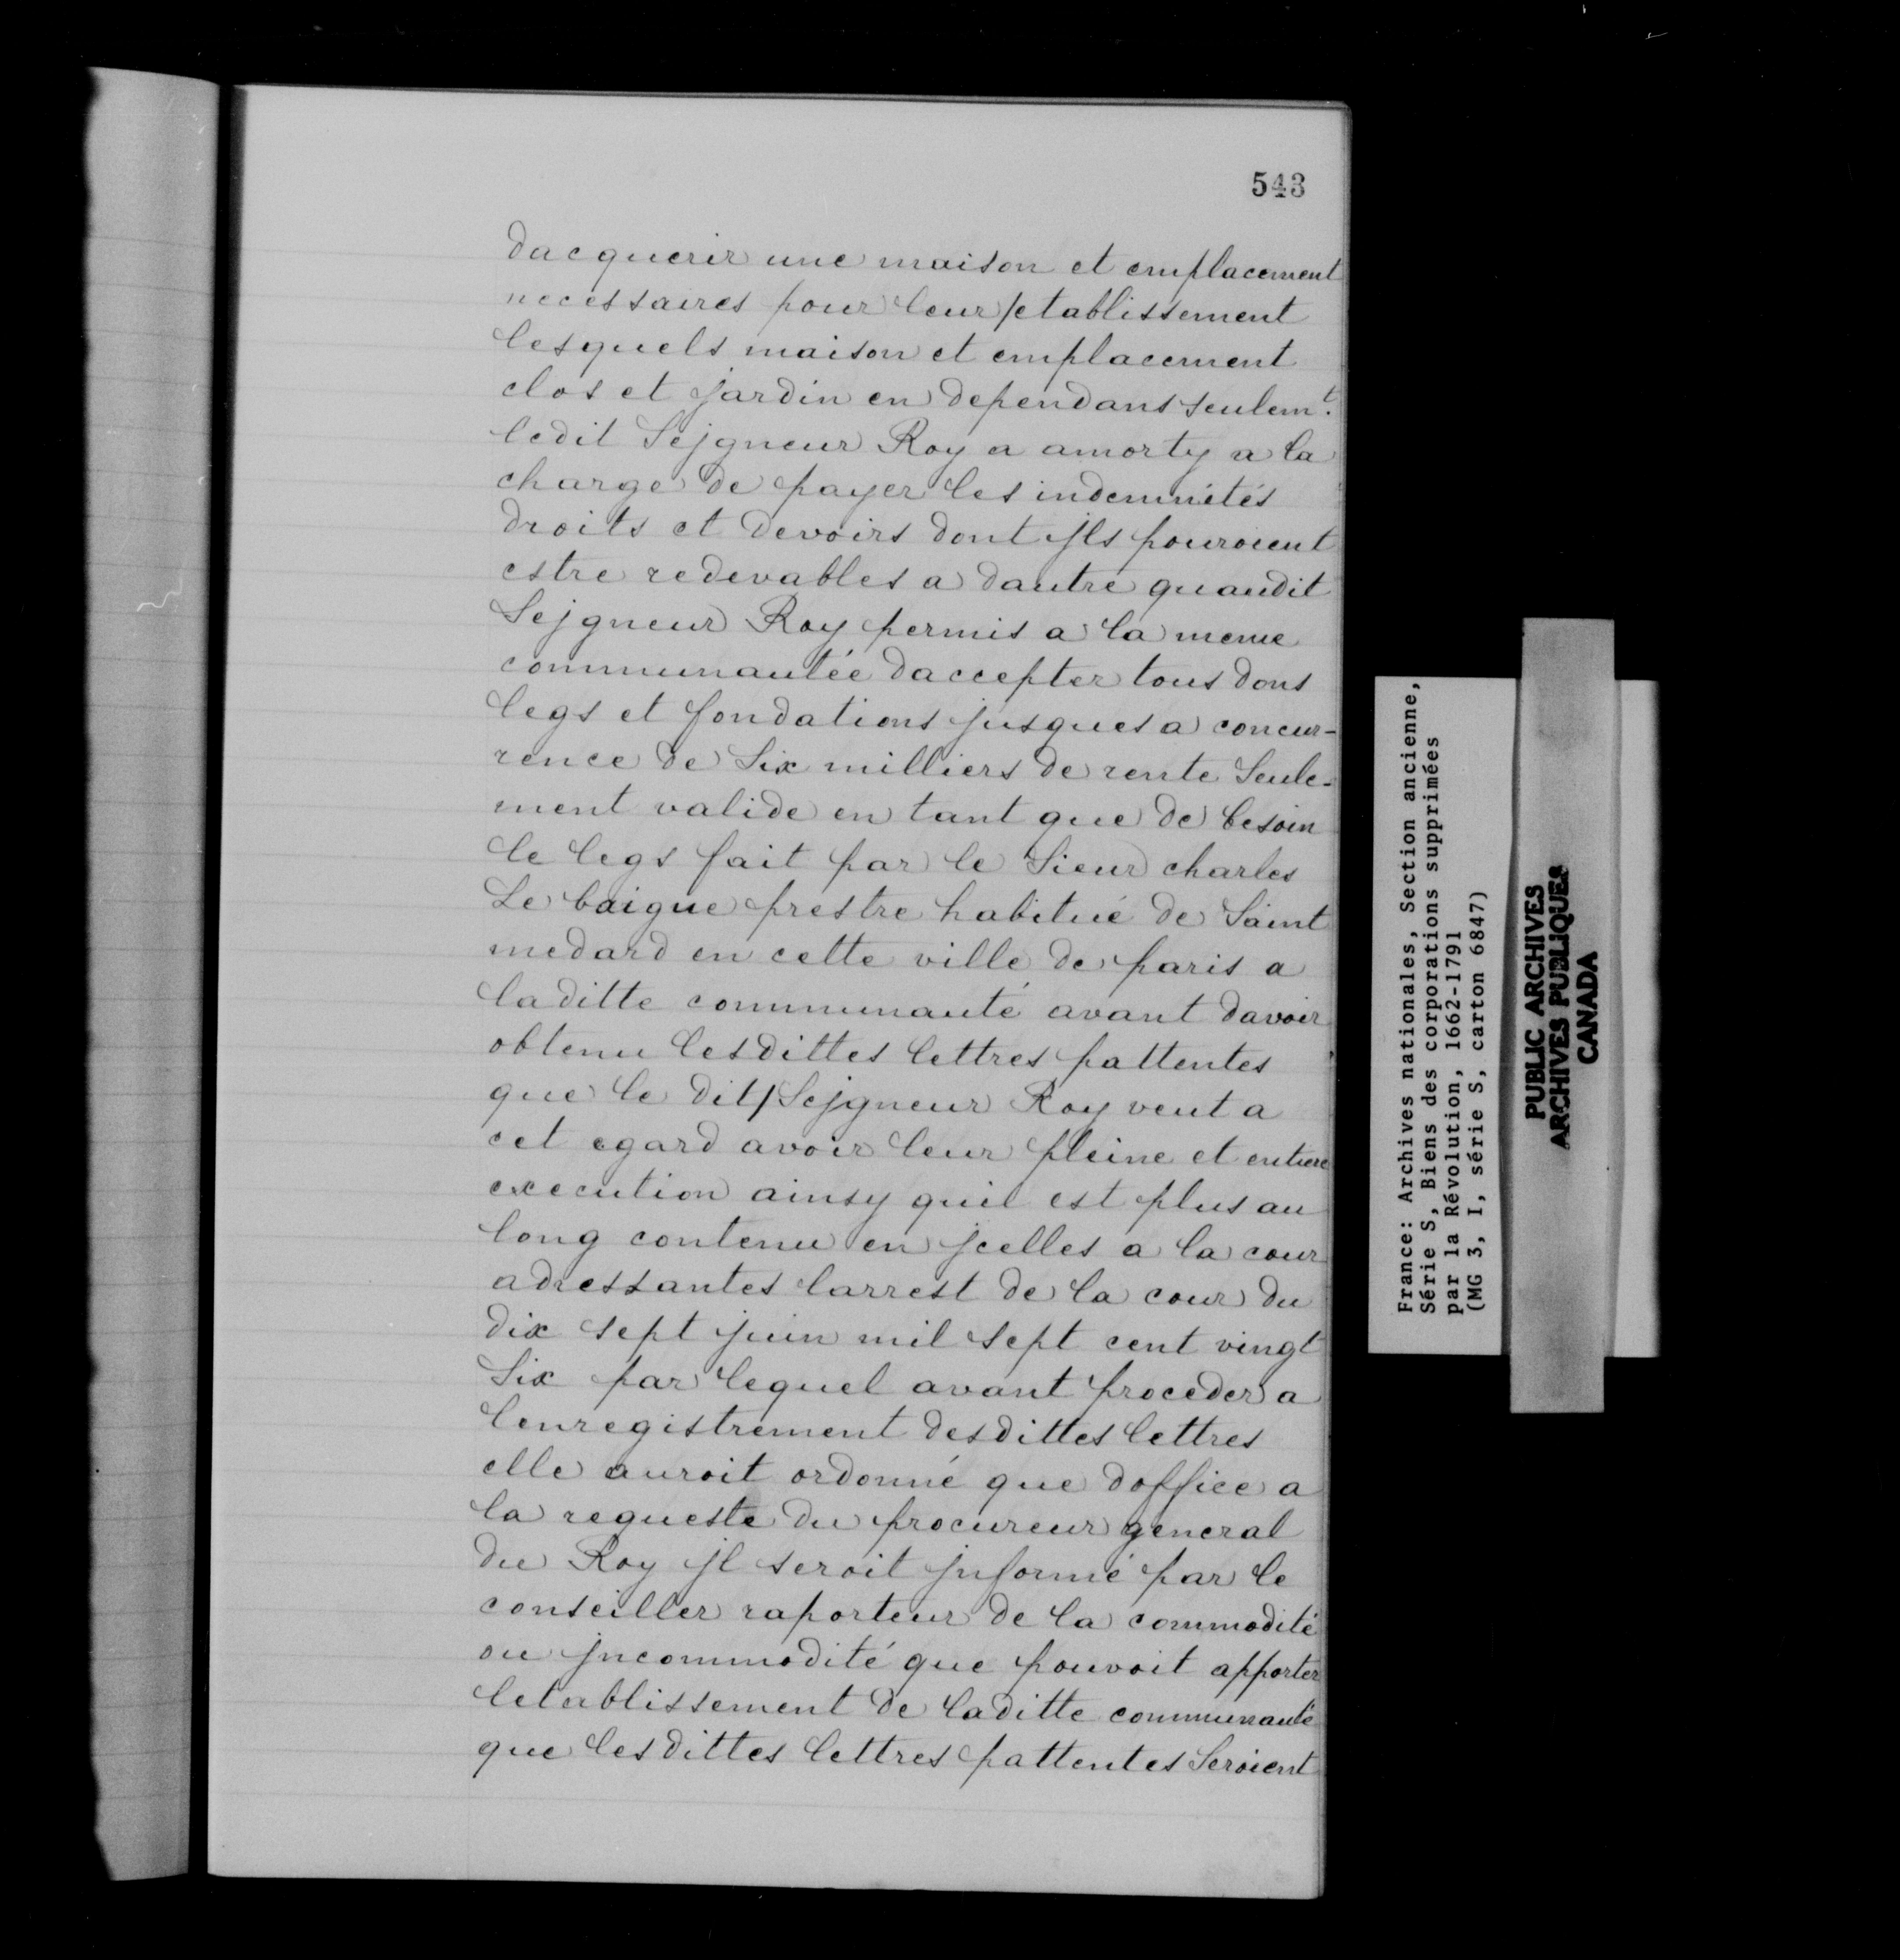 543
dacquerir une maison et emplacement
necessaires pour leur/etablissement
lesquels maison et emplacement
clos et jardin en dependans seulemt.
ledit Sejgneur Roy a amorty a la
charge de payer les indemnités
droits et devoirs dont jls pouroient
estre redevables a dautre quaudit
Sejgneur Roy permis a la meme
communautée daccepter tous dons
legs et fondations jusques a concur-
rence de Six milliers de rente Seule-
ment valide en tant que de besoin
le legs fait par le Sieur charles
Le baigue prestre habitué de Saint
medard en cette ville de paris a
laditte communauté avant davoir
obtenu lesdittes lettres pattentes
que le dit/Sejgneur Roy veut a
cet egard avoir leur pleine et entiere
execution ainsy quil est plus au
long contenu en jcelles a la cour
adressantes larrest de la cour du
dix sept juin mil sept cent vingt
Six par lequel avant proceder a
lenregistrement desdittes lettres
elle auroit ordonné que doffice a
la requeste du procureur general
du Roy jl seroit jnformé par le
conseiller raporteur de la commodité
ou jncommodité que pouvoit apporter
letablissement de laditte communauté
que lesdittes lettres pattentes Seroient
France: Archives nationales, Section ancienne,
Série S, Biens des corporations supprimées
par la Révolution, 1662-1791
(MG 3, I, série S, carton 6847)
PUBLIC ARCHIVES
ARCHIVES PUBLIQUES
CANADA